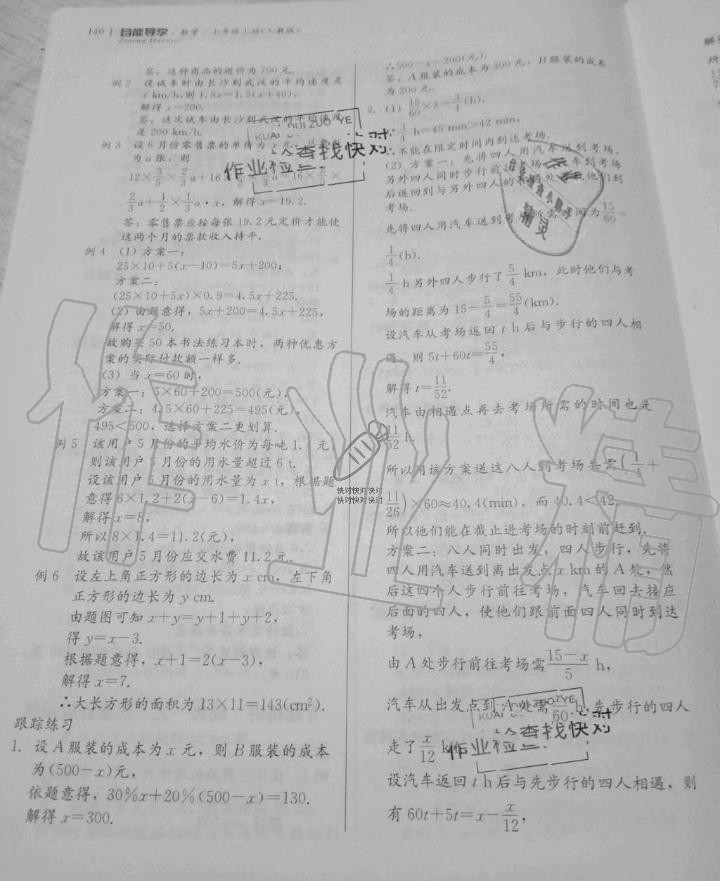 140 自能导学 数学·七年级上册(人教版)
答:这种商品的进价为700元.
例2 设试车时由长沙到武汉的平均速度是
x km/h,则1.8x=1.5(x+40),
解得x=200.
答:这次试车由长沙到武汉的平均速度
是200 km/h.
例3 设6月份零售票的单价为
为a张,则
12×3/5×2/3a+16
2/3a+1/2×1/3a·x.解得x=19.2.
答:零售票应按每张19.2元定价才能使
这两个月的票款收入持平.
例4 (1)方案一:
25×10+5(x-10)=5x+200;
方案二:
(25×10+5x)×0.9=4.5x+225.
(2)由题意得,5x+200=4.5x+225,
解得x=50.
故购买50本书法练习本时,两种优惠方
案的实际付款额一样多.
(3)当x=60时,
方案一:5×60+200=500(元),
方案二:4.5×60+225=495(元),
495<500,选择方案二更划算.
例5 该用户5月份的平均水价为每吨1. 元,
则该用户5月份的用水量超过6 t.
设该用户5月份的用水量为x t,根据题
意得6×1.2+2(x-6)=1.4x,
解得x=8,
所以8×1.4=11.2(元),
故该用户5月份应交水费11.2元.
例6 设左上角正方形的边长为x cm,左下角
正方形的边长为y cm.
由题图可知x+y=y+1+y+2,
得y=x-3.
根据题意得,x+1=2(x-3),
解得x=7.
∴大长方形的面积为13×11=143(cm²).
跟踪练习
1. 设A服装的成本为x元,则B服装的成本
为(500-x)元,
依题意得,30%x+20%(500-x)=130.
解得x=300.
∴500-x=200(元).
答:A服装的成本为300元,B服装的成本
为200元.
2. (1)15/60×3=3/4(h).
∴3/4 h=45 min>42 min,
∴不能在限定时间内到达考场.
(2)方案一:先将四人用汽车送到考场,
另外四人同时步行前往考场,汽车到考场
后返回到与另外四人的
考场.
先将四人用汽车送到考场所需时间为15/60=
1/4(h).
1/4 h另外四人步行了5/4 km,此时他们与考
场的距离为15-5/4=55/4(km).
设汽车从考场返回t h后与步行的四人相
遇,则5t+60t=55/4,
解得t=11/52.
汽车由相遇点再去考场所需的时间也是
11/52 h.
所以用该方案送这八人到考场共需(1/4+
11/26)×60≈40.4(min),而40.4<42,
所以他们能在截止进考场的时刻前赶到.
方案二:八人同时出发,四人步行,先将
四人用汽车送到离出发点x km的A处,然
后这四个人步行前往考场,汽车回去接应
后面的四人,使他们跟前面四人同时到达
考场,
由A处步行前往考场需15-x/5 h,
汽车从出发点到A处需x/60 h,先步行的四人
走了x/12 k
设汽车返回t h后与先步行的四人相遇,则
有60t+5t=x-x/12,
作业精
快对快对快对
快对快对快对
查找快对
作业检
查找快对
作业检